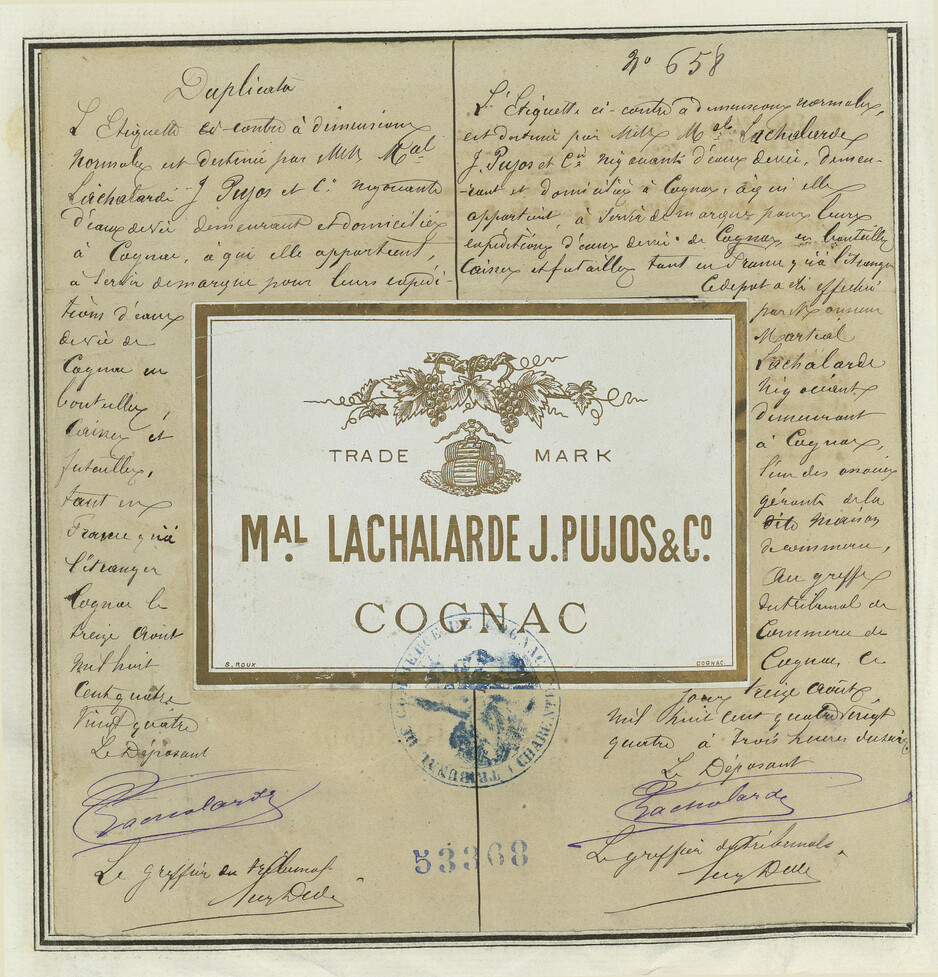 Duplicata
L'Etiquette ci-contre à dimensions
normales est destinée par MM. Mal
Lachalarde J. Pujos et Co. négociants
d'eaux de vie demeurant et domiciliés
à Cognac, à qui elle appartient,
à servir de marque pour leurs expédi-
tions d'eaux
de vie de
Cognac en
bouteilles,
Caisses et
futailles,
tant en
France qu'à
l'étranger
Cognac le
treize Août
mil huit
cent quatre
vingt quatre
Le Déposant
Lachalarde
Le greffier du tribunal
No 658
L'Etiquette ci-contre à dimensions normales,
est destinée par MM. Mal. Lachalarde
J. Pujos et Cie négociants d'eaux de vie, demeu-
rant et domiciliés à Cognac, à qui elle
appartient, à servir de marque pour leurs
expéditions d'eaux de vie de Cognac, en bouteilles
Caisses et futailles tant en France qu'à l'étranger
Ce dépot a été effectué
par Monsieur
Martial
Lachalarde
négociant
demeurant
à Cognac,
l'un des associés
gérants de la
dite maison
de commerce,
Au greffe
du tribunal de
Commerce de
Cognac, ce
jour treize Août
mil huit cent quatre vingt
quatre à trois heures du soir
Le Déposant
Lachalarde
Le greffier du tribunal
TRADE MARK
MAL. LACHALARDE J. PUJOS & CO.
COGNAC
S. ROUX
COGNAC.
TRIBUNAL DE COMMERCE DE COGNAC (CHARENTE)
53368